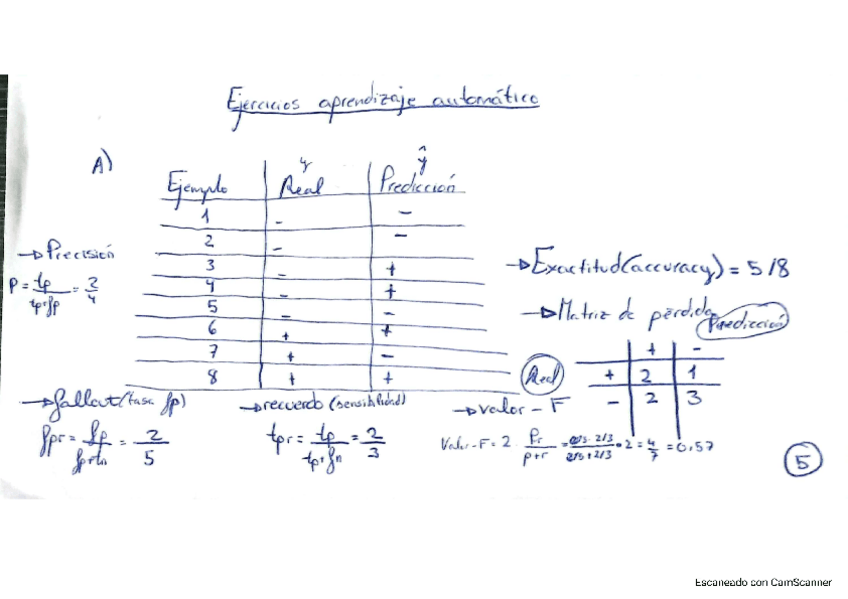 Ejercicios aprendizaje automático
A)
y ŷ
Ejemplo Real Predicción
1 - -
2 - -
3 - +
4 - +
5 - -
6 + +
7 + -
8 + +
→ Precisión
P = tp / tp+fp = 2/4
→ Exactitud (accuracy) = 5/8
→ Matriz de pérdida
Predicción
+ -
Real + 2 1
- 2 3
→ fallout (tasa fp)
fpr = fp / fp+tn = 2/5
→ recuerdo (sensibilidad)
tpr = tp / tp+fn = 2/3
→ valor-F
Valor-F = 2 pr / p+r = · 2 = 4/7 = 0,57
5
Escaneado con CamScanner